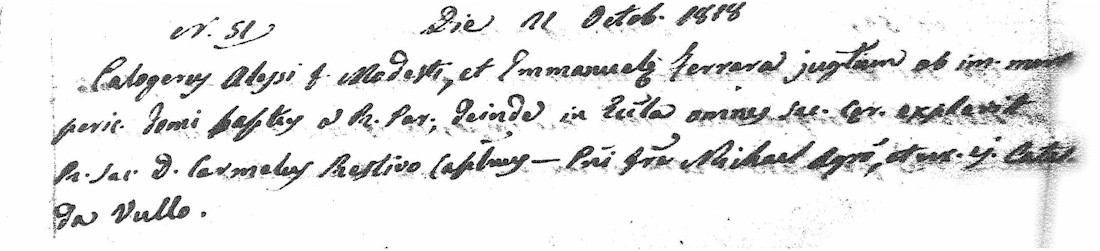 N. 51 Die 21 Octob. 1818
Calogerus Alessi f. Modesti, et Emmanuelę Ferrara jugalium ob im. mort.
peric. domi baptus a R. Par., deinde in Ecĉla omnes sac. cær. explevit
R. Sac. D. Carmelus Restivo Capłnus — Pŕi fŕe Michael Agrò, et ux. ej. Catal
da Vullo.